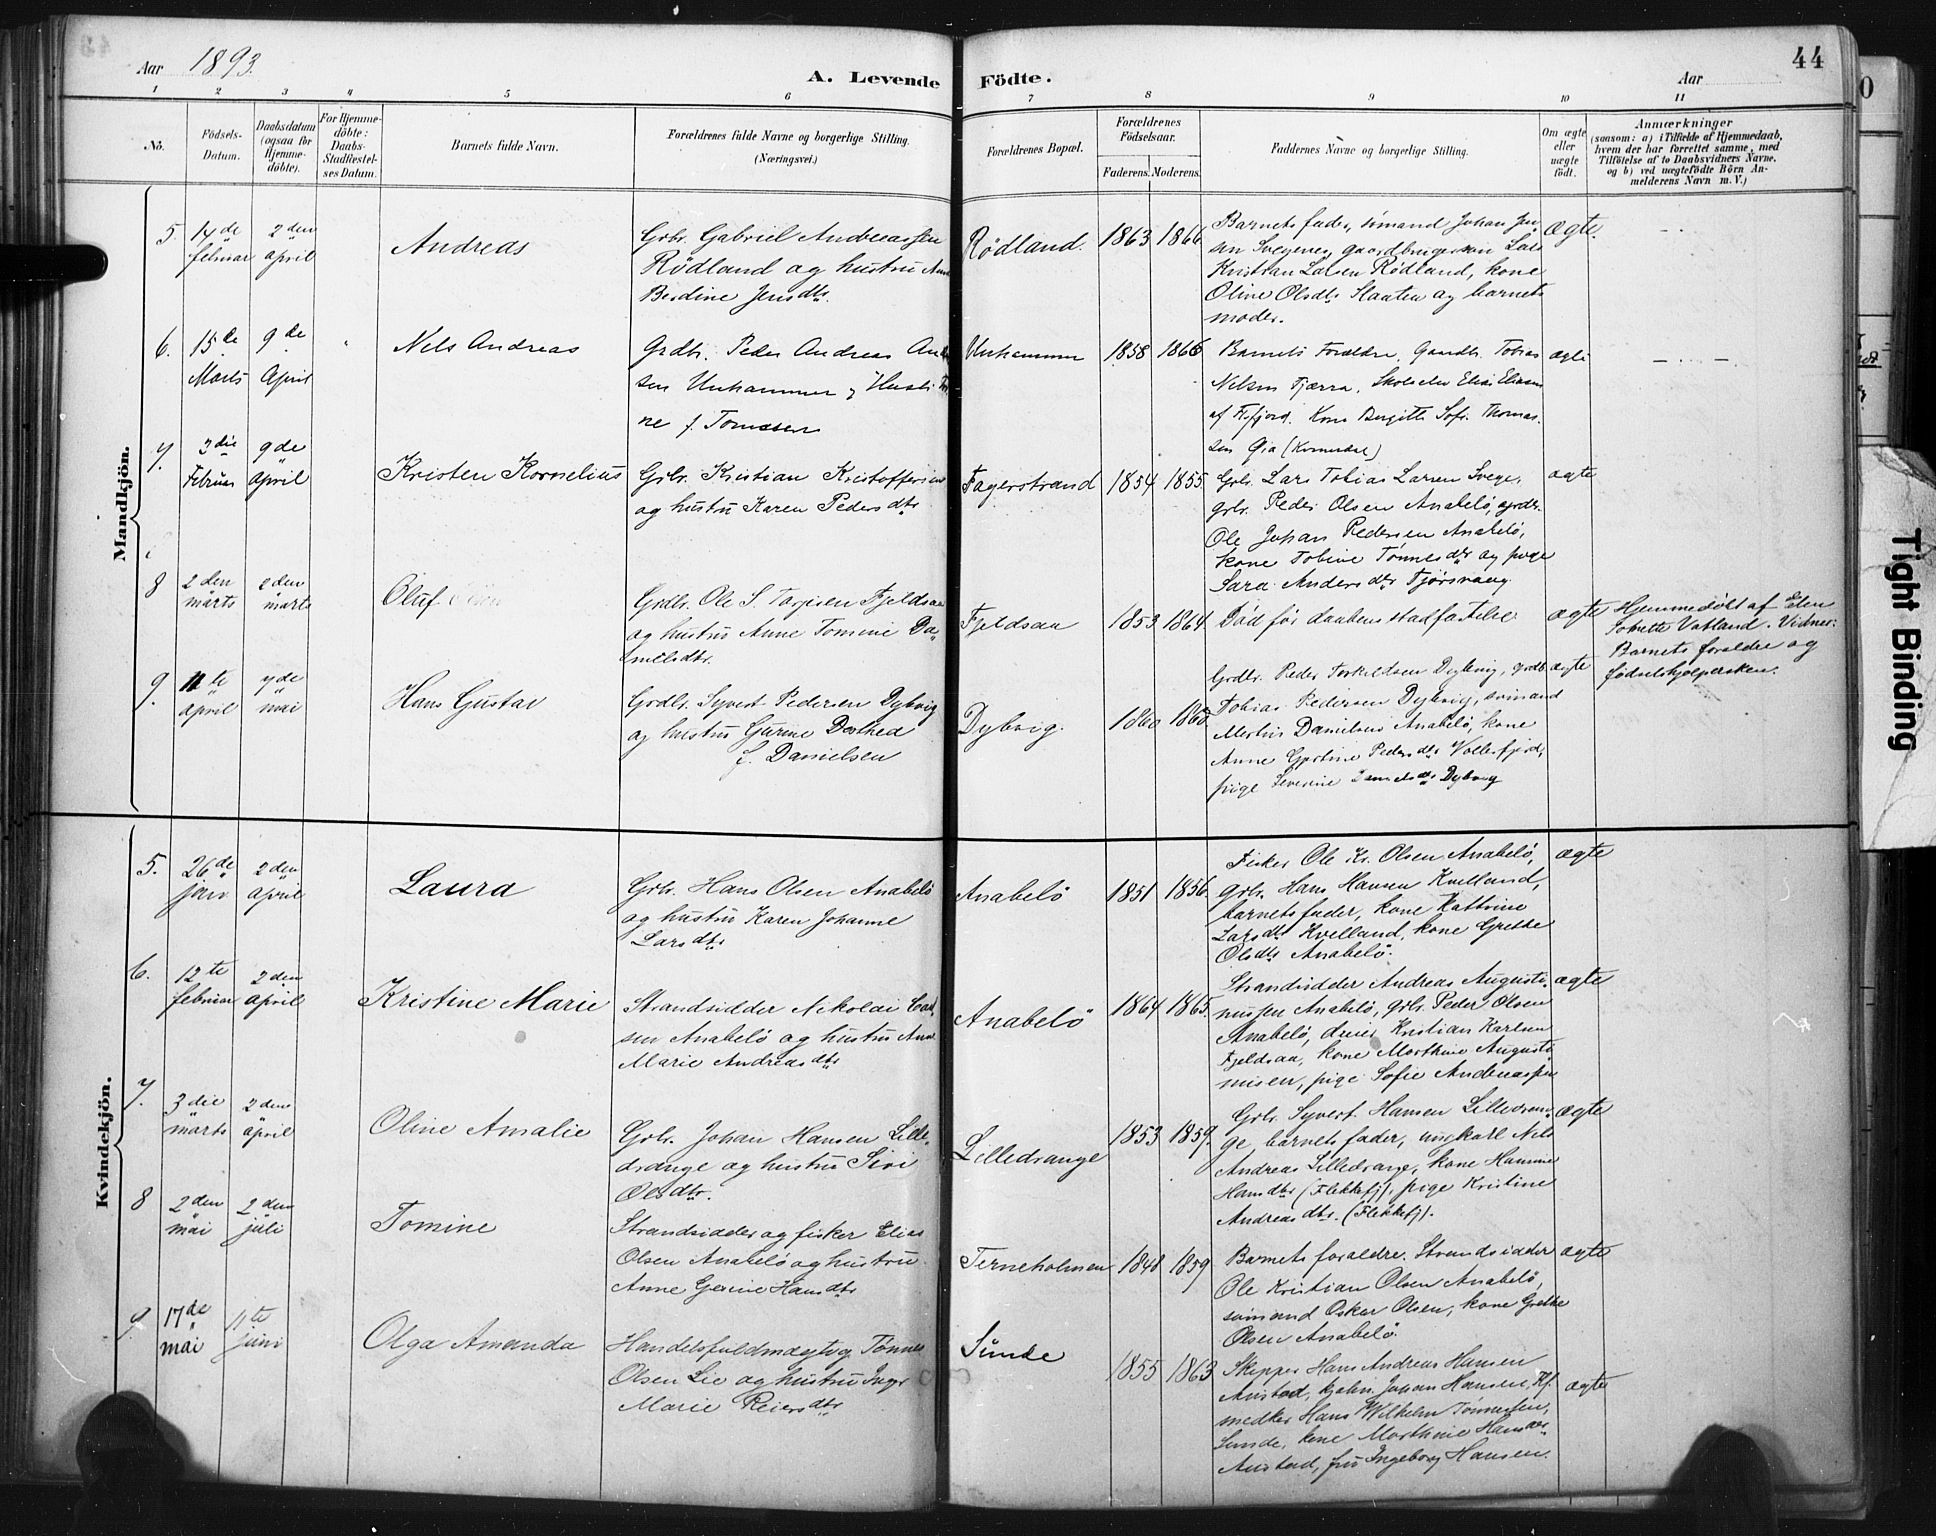 Aar 1893.
A. Levende Födte.
Aar
44
1 2 3 4 5 6 7 8 9 10 11
No.
Födsels-Datum.
Daabsdatum (ogsaa for Hjemmedöbte).
For Hjemmedöbte: Daabs-Stadfæstelses Datum.
Barnets fulde Navn.
Forældrenes fulde Navne og borgerlige Stilling.
(Næringsvei.)
Forældrenes Bopæl.
Forældrenes Födselsaar.
Faderens. Moderens.
Faddernes Navne og borgerlige Stilling.
Om ægte eller uægte födt.
Anmærkninger
(saasom: a) i Tilfælde af Hjemmedaab,
hvem der har forrettet samme, med
Tilföielse af to Daabsvidners Navne,
og b) ved uægtefödte Börn An-
melderens Navn m. V.)
Mandkjön.
5. 14de februar 2den april
Andreas
Grbr. Gabriel Andreassen
Rödland og hustru
Berdine Jensdtr.
Rödland.
1863 1866
Barnets fader, sömand Johan Jen
sen Svegene, gaardbruger Lars
Kristian Larsen Rödland, kone
Oline Olsdtr Slaaten og barnets
moder.
ægte.
6. 15de Marts 9de April
Nels Andreas
Grdbr. Peder Andreas
sen Urhammer
ne f. Tomasen
1858 1866
Barnets Forældre, Gaardbr. Tobias
Nelsen Fjærra,
Kone Birgitte Sof. Thomas
sen
ægte
7. 3die Februar 9de April
Kristen Kornelius
Grbr. Kristian Kristoffersen
og hustru Karen Pedersdtr
Fagerstrand
1854 1855
Grbr. Lars Tobias Larsen Svege,
grbr. Peder Olsen Anabelö,
Ole Johan Pedersen Anabelö,
kone Tobine Tönnesdtr og pige
Sara Andersdtr Tjörsvaag.
ægte
8 2den marts 2den marts
Oluf
Grdbr. Ole S. Tarjesen Fjeldsaa
og hustru Anne Tomine Da
nielsdtr.
Fjeldsaa
1853 1864
Död för daabens stadfæstelse
ægte
Hjemmedöbt af Elen
Tobrette Vatland. Vidner:
Barnets forældre og
födselshjelpersken.
9. 11te april 7de mai
Hans Gustav
Grdbr. Syvert Pedersen Dybvig
og hustru Gurine Dorthea
f. Danielsen
Dybvig.
1860
Grdbr. Peder Torkildsen Dybvig, grdb.
Tobias Pedersen Dybvig, sömand
Danielsen Anabelö, kone
Anne Gjertine Pedersdtr Vollesfjord,
pige Severine Danielsdtr Dybvig
ægte
Kvindekjön.
5. 26de jan 2den april
Laura
Grbr. Hans Olsen Anabelö
og hustru Karen Johanne
Larsdtr
Anabelö
1851 1856.
Fisker Ole Kr. Olsen Anabelö,
grbr. Hans Hansen Kvelland,
barnets fader, kone Kathrine
Larsdtr Kvelland, kone Grethe
Olsdtr Anabelö.
ægte
6. 12te februar 2den april
Kristine Marie
Strandsidder Nikolai
sen Anabelö og hustru Anne
Marie Andreasdtr
Anabelö
1864 1865.
Strandsidder Andreas Augusti-
nussen Anabelö, grbr. Peder Olsen
Anabelö, dreier Kristian Karlsen
Fjeldsaa, kone Marthine Augusti
nisen, pige Sofie Andreassen
ægte
7. 3die marts 2den april
Oline Amalie
Grbr. Johan Hansen Lille-
drange og hustru Siri
Olsdtr.
Lilledrange
1853 1859.
Grbr. Syvert Hansen Lilledran-
ge, barnets fader, ungkarl Nils
Andreas Lilledrange, kone Hanne
Hansdtr (Flekkefj), pige Kristine
Andreasdtr. (Flekkefj).
ægte
8 2den mai 2den juli
Tomine
Strandsidder og fisker Elias
Olsen Anabelö og hustru
Anne Gurine Hansdtr
Terneholmen
1848 1859
Barnets forældre. Strandsidder
Ole Kristian Olsen Anabelö,
sömand Oskar Olsen, kone Grethe
Olsen Anabelö.
ægte
9. 17de mai 11te juni
Olga Amanda
Handelsfuldmægtig Tönnes
Olsen Lie og hustru Inger
Marie Reiersdtr
Sunde
1855 1863
Skipper Hans Andreas Hansen
Austad, Johan Hansen, Kf.
Hans Wilhelm Tönnesen,
Sunde, kone Marthine Hansen
Austad, fru Ingeborg Hansen.
ægte
Tight Binding